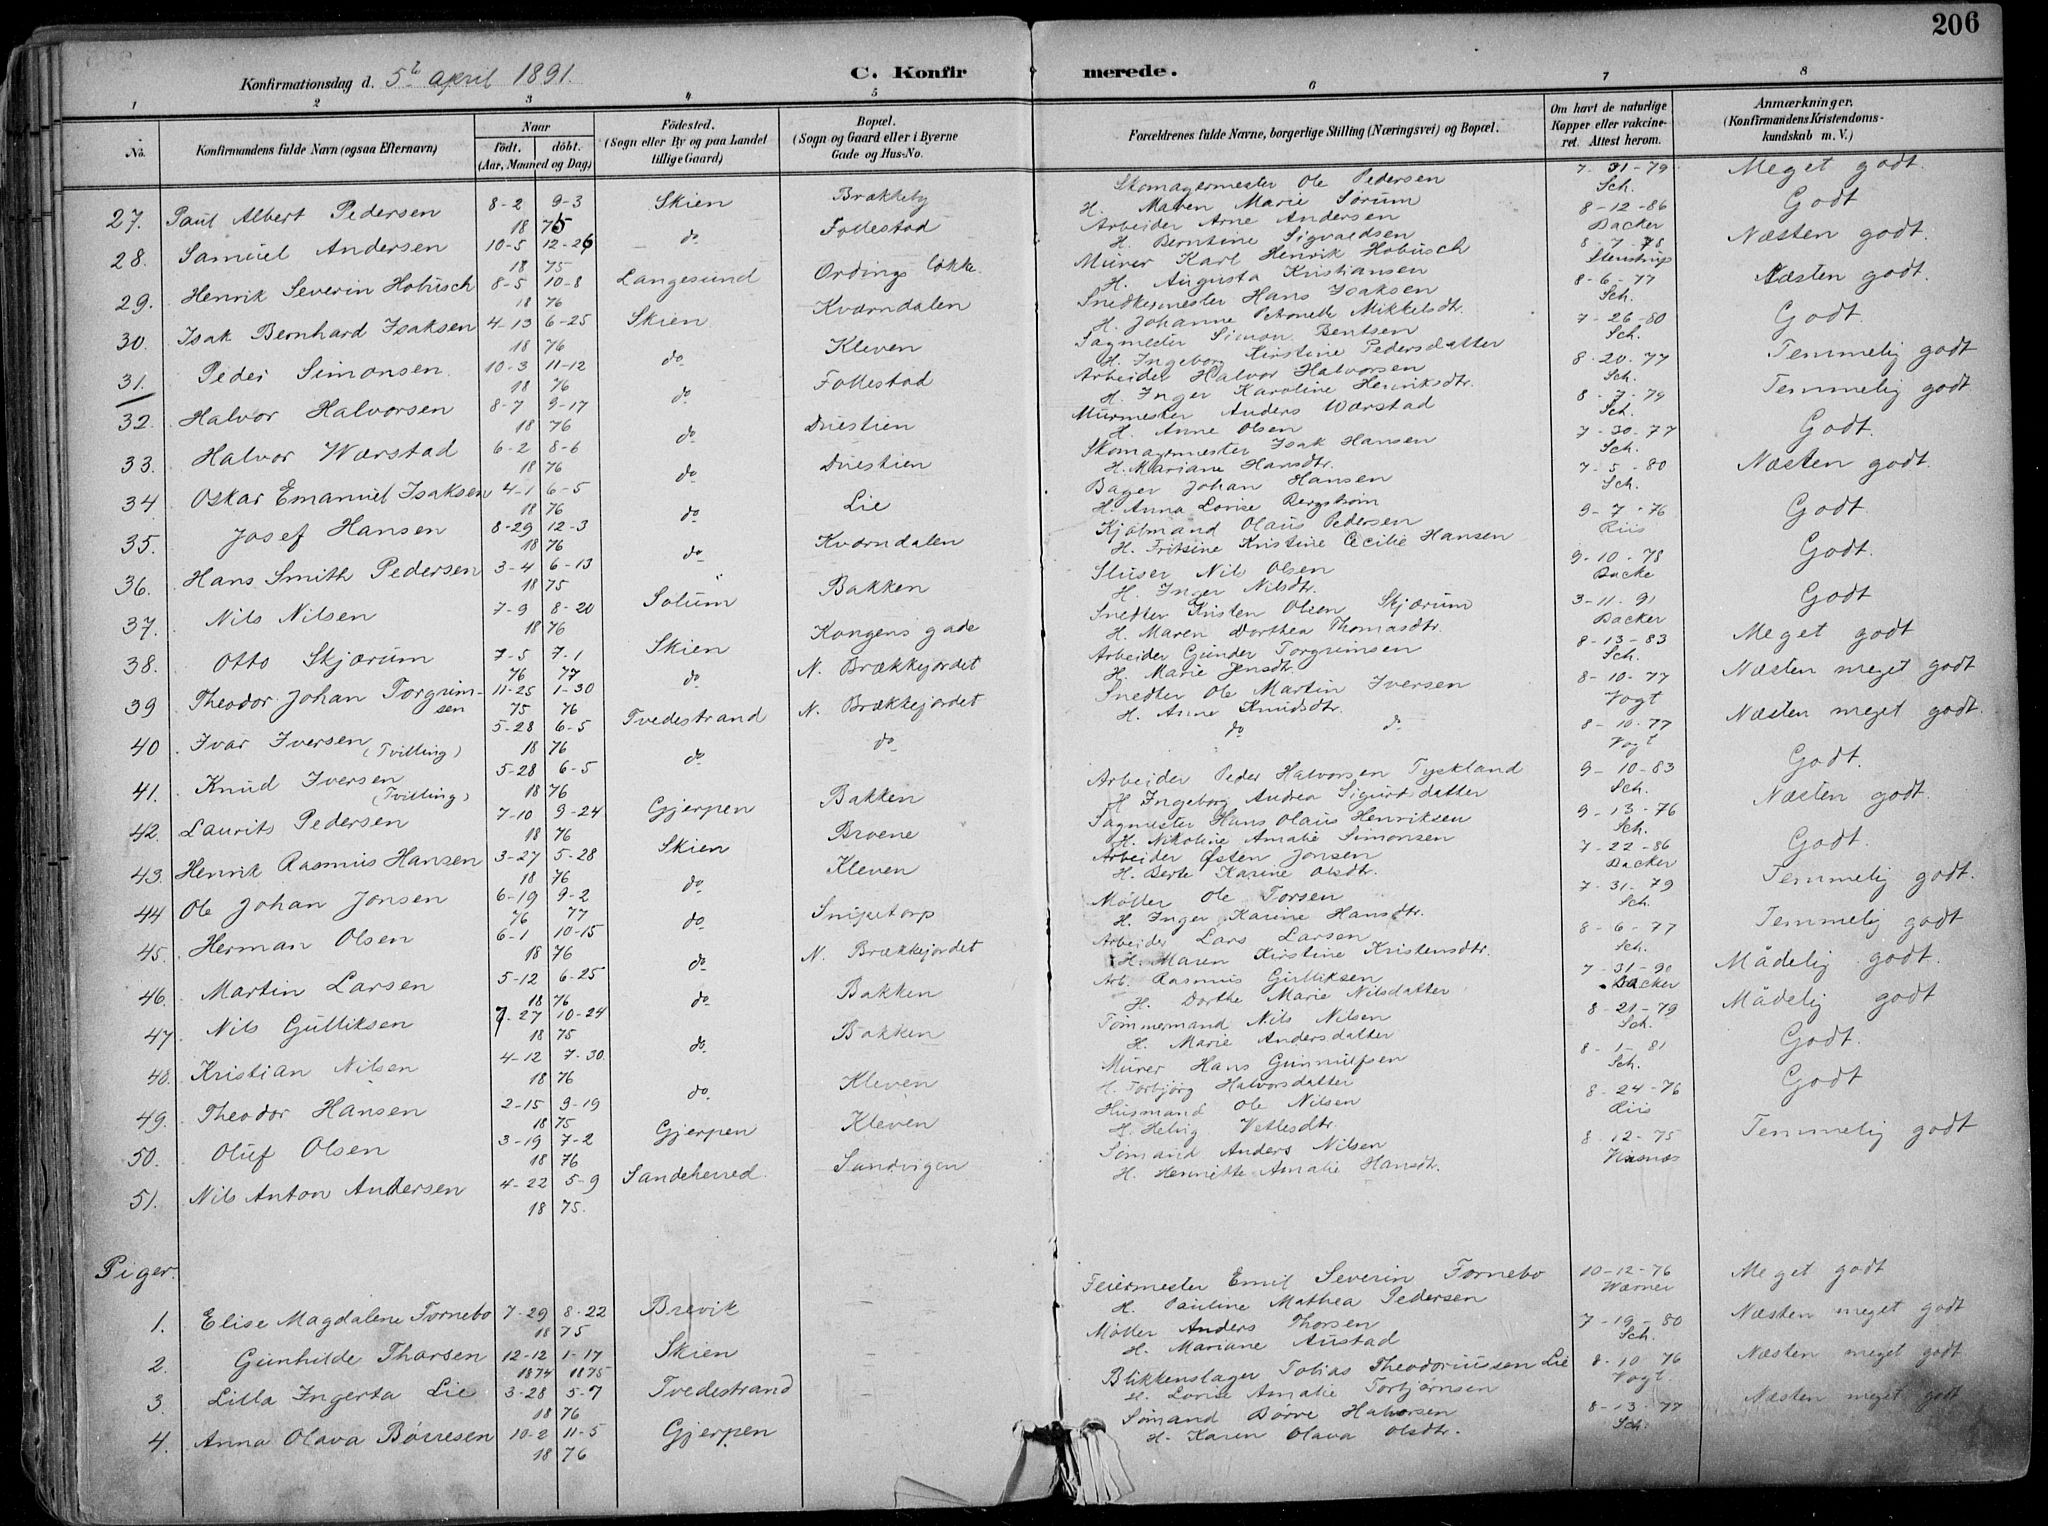 206
Konfirmationsdag d. 5t April 1891. C. Konfirmerede.
1 2 3 4 5 6 7 8
No. Konfirmandens fulde Navn (ogsaa Efternavn) Naar født. døbt. (Aar, Maaned og Dag) Fødested. (Sogn eller By og paa Landet tillige Gaard) Bopæl. (Sogn og Gaard eller i Byerne Gade og Hus-No. Forældrenes fulde Navne, borgerlige Stilling (Næringsvei) og Bopæl. Om havt de naturlige Kopper eller vakcineret. Attest herom. Anmærkninger. (Konfirmandens Kristendomskundskab m. V.)
27. Paul Albert Pedersen 8-2 9-3 1875 Skien Brækkeby Skomagermester Ole Pedersen H. Maren Marie Sørum 7-31-79 Sch. Meget godt.
28. Samuel Andersen 10-5 12-26 1875 do Follestad Arbeider Arne Andersen H. Berntine Sigvaldsen 8-12-86 Backer Godt
29. Henrik Severin Hobusch 8-5 10-8 1876 Langesund Ordings løkke Murer Karl Henrik Hobusch H. Augusta Kristiansen 8-7-78 Stenstrup Næsten godt.
30. Isak Bernhard Isaksen 4-13 6-25 1876 Skien Kværndalen Snedkermester Hans Isaksen H. Johanne Petronelle Mikkelsdtr. 8-6-77 Sch. Næsten godt.
31. Peder Simonsen 10-3 11-12 1876 do Kleven Sagmester Simon Bentsen H. Ingeborg Kirstine Pedersdatter 7-26-80 Sch. Godt.
32. Halvor Halvorsen 8-7 9-17 1876 do Follestad Arbeider Halvor Halvorsen H. Inger Karoline Henriksdtr. 8-20-77 Sch. Temmelig godt
33. Halvor Wærstad 6-2 8-6 1876 do Duestien Murmester Anders Wærstad H. Anne Olsen 8-7-79 Sch. Temmelig godt
34 Oskar Emanuel Isaksen 4-1 6-5 1876 do Duestien Skomagermester Isak Hansen H. Mariane Hansdtr. 7-30-77 Sch. Godt.
35. Josef Hansen 8-29 12-3 1876 do Lie Bager Johan Hansen H. Anna Lovise Bergstrøm 7-5-80 Sch. Næsten godt.
36. Hans Smith Pedersen 3-4 6-13 1875 do Kværndalen Kjølmand Olaus Pedersen H. Fritsine Kristine Cecilie Hansen 9-7-76 Riis Godt.
37. Nils Nilsen 7-9 8-20 1876 Solum Bakken Sluser Nils Olsen H. Inger Nilsdtr. 9-10-78 Backe Godt.
38. Otto Skjærum 7-5 76 7-1 77 Skien Kongens gade Snedker Kristen Olsen Skjærum H. Maren Dorthea Thomasdtr. 3-11-91 Backer Godt
39 Theodor Johan Torgrimsen 11-25 75 1-30 76 do N. Brækkejordet Arbeider Gunder Torgrimsen H. Marie Jensdtr. 8-13-83 Sch. Meget godt
40 Ivar Iversen (Tvilling) 5-28 6-5 1876 Tvedestrand N. Brækkejordet Snedker Ole Martin Iversen H. Anne Knudsdtr. 8-10-77 Vogt Næsten meget godt
41. Knud Iversen (Tvilling) 5-28 6-5 1876 do do do do 8-10-77 Vogt Næsten meget godt.
42. Laurits Pedersen 7-10 9-24 1876 Gjerpen Bakken Arbeider Peder Halvorsen Tyskland H. Ingeborg Andrea Sigurdsdatter 9-10-83 Sch. Godt.
43. Henrik Rasmus Hansen 3-27 5-28 1876 Skien Broene Sagmester Hans Olaus Henriksen H. Nikoline Amalie Simonsen 9-13-76 Sch. Næsten godt.
44 Ole Johan Jonsen 6-19 76 9-2 77 do Kleven Arbeider Østen Jonsen H. Berte Karine Olsdtr. 7-22-86 Backer Godt.
45. Herman Olsen 6-1 10-15 1876 do Snipetorp Møller Ole Torsen H. Inger Karine Hansdtr. 7-31-79 Sch. Temmelig godt.
46. Martin Larsen 5-12 6-25 1876 do N. Brækkejordet Arbeider Lars Larsen H. Maren Kirstine Kristensdtr. 8-6-77 Sch. Temmelig godt
47. Nils Gulliksen 7-27 10-24 1875 do Bakken Arb. Rasmus Gulliksen H. Dorthe Marie Nilsdatter 7-31-90 Backer Mådelig godt.
48. Kristian Nilsen 4-12 7-30 1876 do Bakken Tømmermand Nils Nilsen H. Marie Andersdatter 8-21-79 Sch. Mådelig godt
49. Theodor Hansen 2-15 9-19 1875 do Kleven Murer Hans Gunnulfsen H. Torbjørg Halvorsdatter 8-1-81 Sch. Godt.
50. Oluf Olsen 3-19 7-2 1876 Gjerpen Kleven Husmand Ole Nilsen H. Helvig Vetlesdtr. 8-24-76 Riis Godt
51. Nils Anton Andersen 4-22 5-9 1875. Sandeherred. Sandvigen Sømand Anders Nilsen H. Henriette Amalie Hansdtr. 8-12-75 Temmelig godt
Piger.
1. Elise Magdalene Fornebo 7-29 8-22 1875 Brevik Feiermester Emil Severin Fornebo H. Pauline Mathea Pedersen 10-12-76 Wærner Meget godt
2 Gunhilde Thorsen 12-12 1874 1-17 1875 Skien Møller Anders Thorsen H. Mariane Austad 7-19-80 Sch. Næsten meget godt
3. Lilla Ingerta Lie 3-28 5-7 1876 Tvedestrand Blikkenslager Tobias Theodoriussen Lie H. Lovise Amalie Torbjørnsen 8-10-76 Vogt. Næsten meget godt
4. Anna Olava Børresen 10-2 11-5 1876 Gjerpen Sømand Børre Halvorsen H. Karen Olava Olsdtr. 8-13-77 Sch. Næsten meget godt